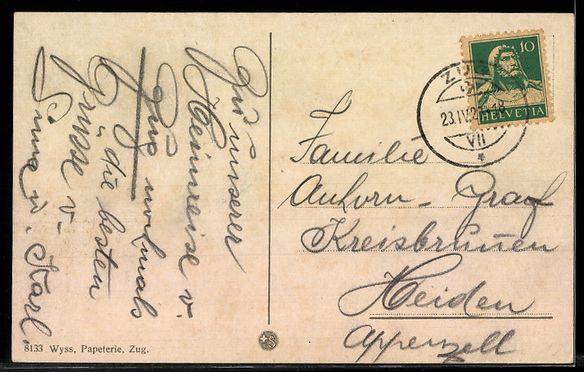 Zu unserer
Heimreise v.
Zug nochmals
die besten
Grüsse v.
Sina u. Karl.
10
HELVETIA
ZUG
23.IV.2
VII
Familie
Auhorn - Graf
Kreisbrunnen
Heiden
Appenzell
8133 Wyss, Papeterie, Zug.